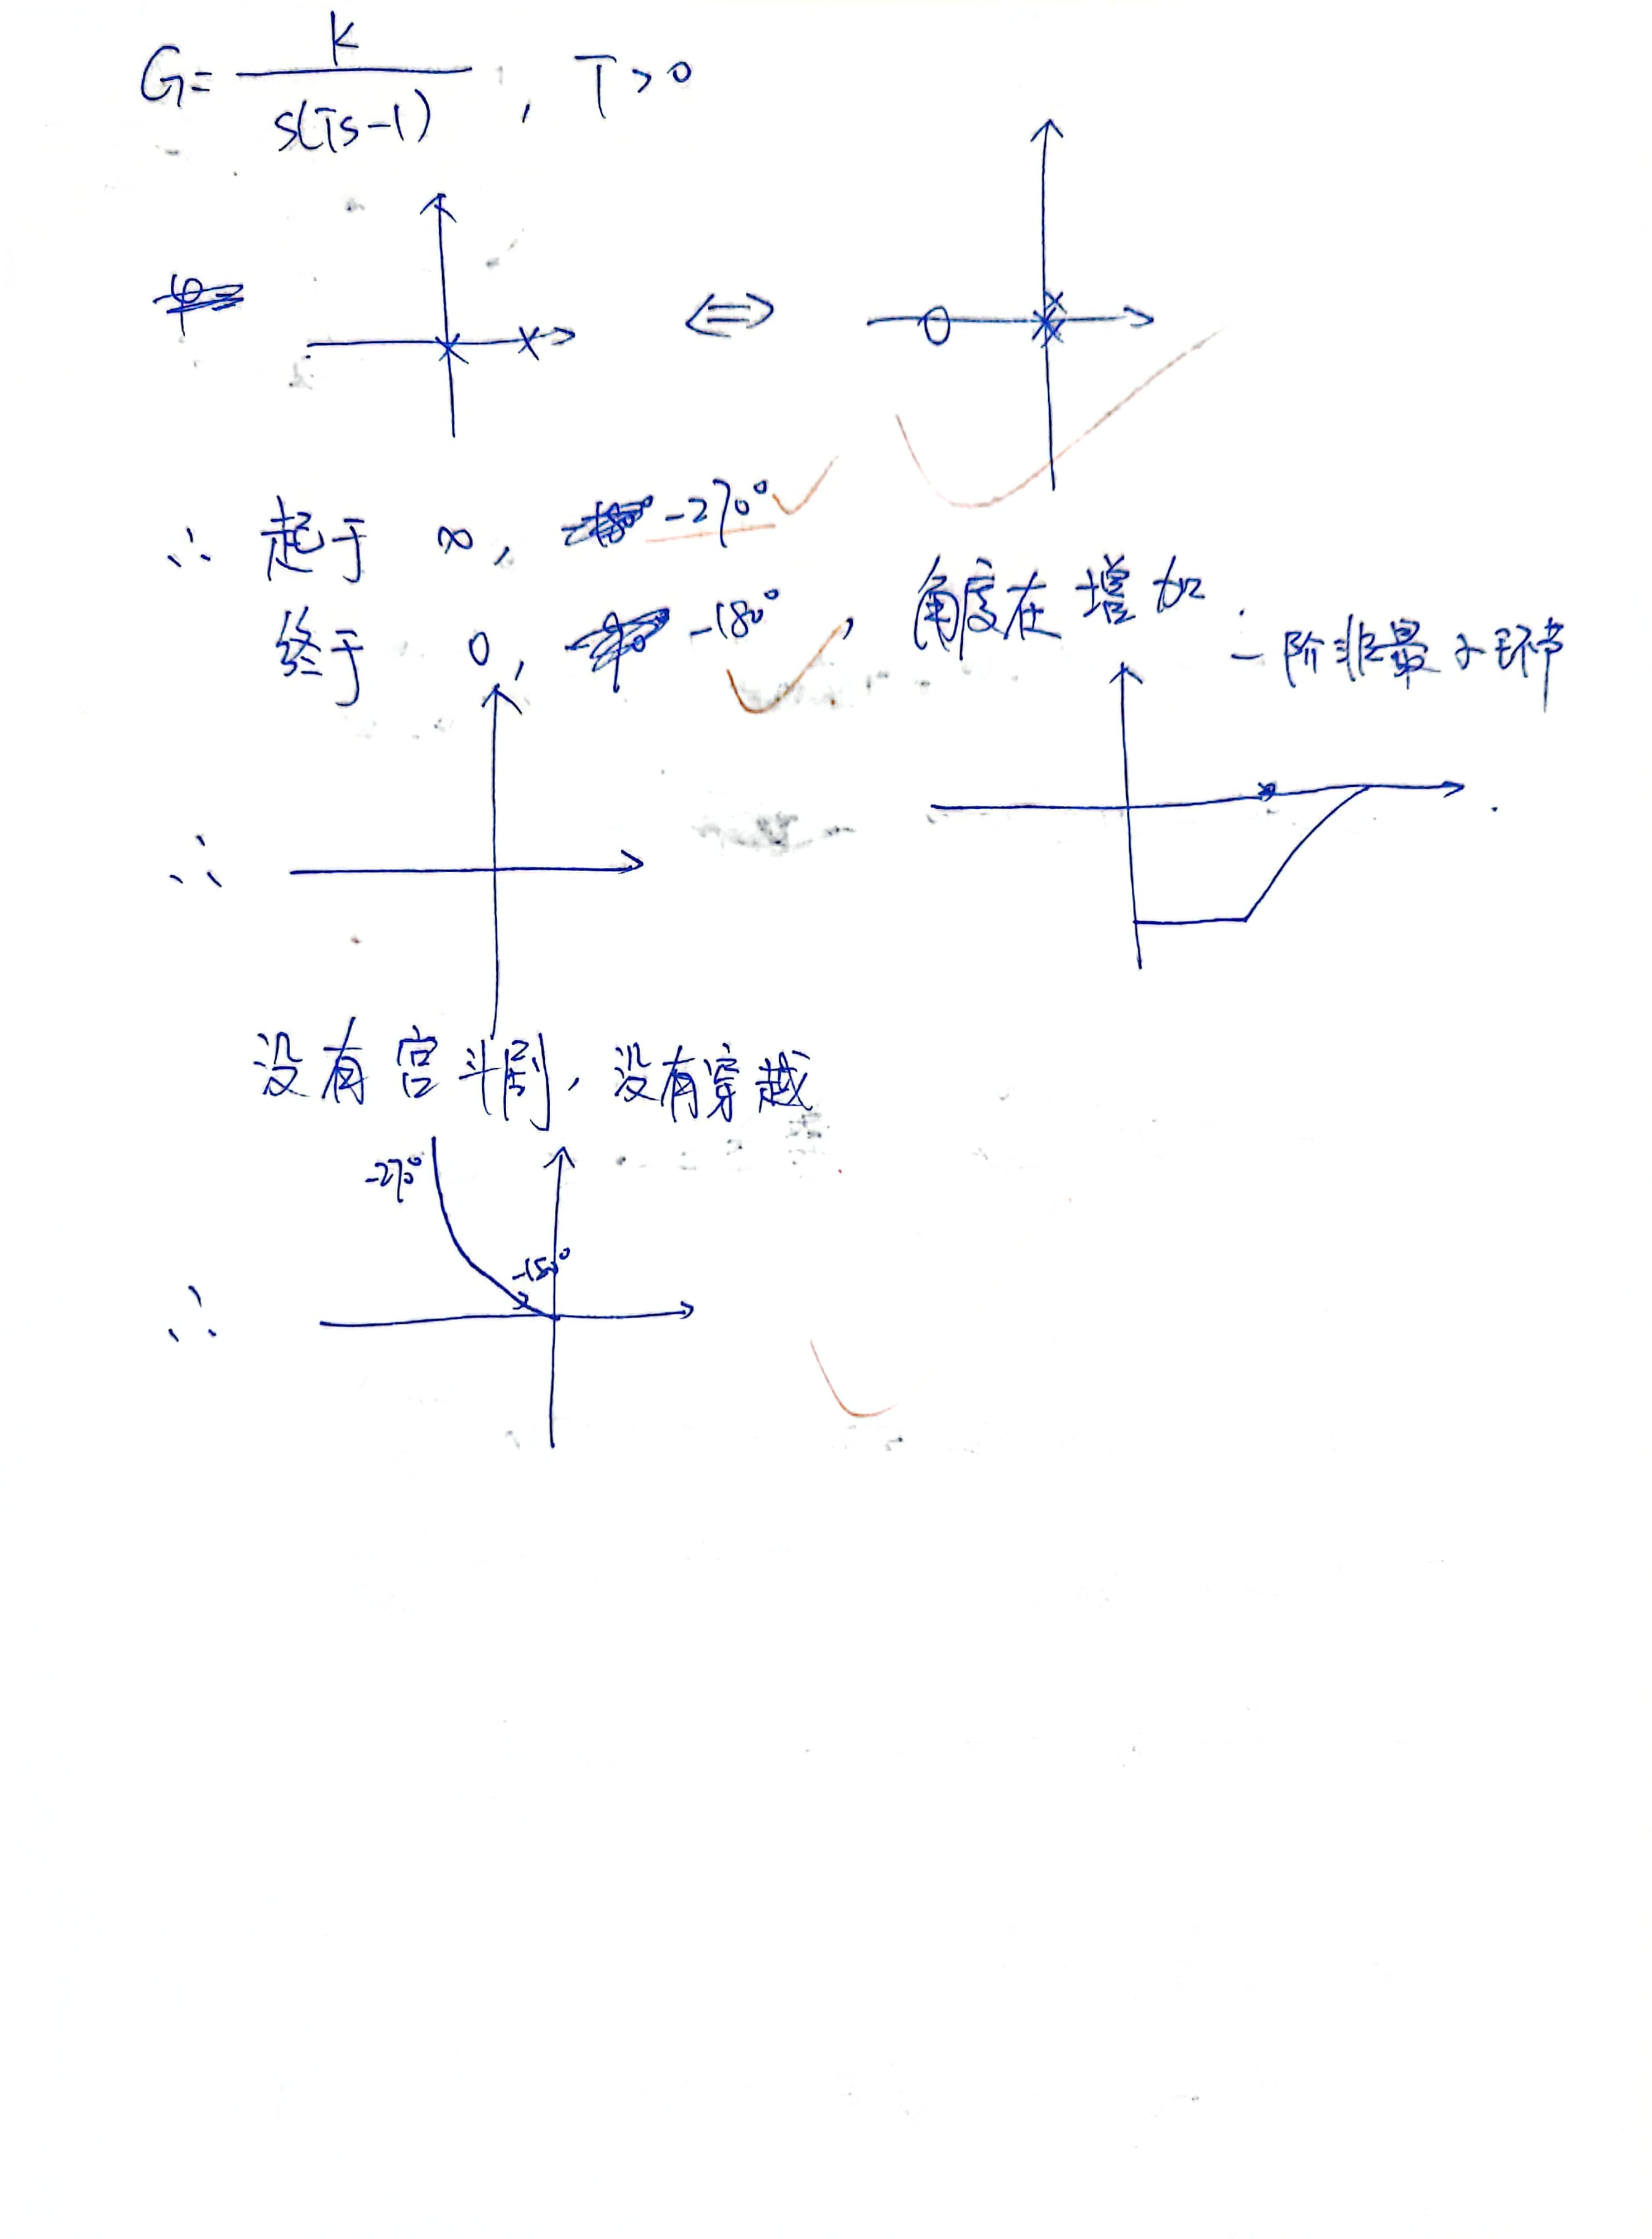 G = K / s(Ts-1) , T>0
⇔
∴ 起于 ∞, -270°
终于 0, -180°, 角度在增加
一阶非最小环节
∴
没有宫斗剧,没有穿越
-270°
-180°
∴